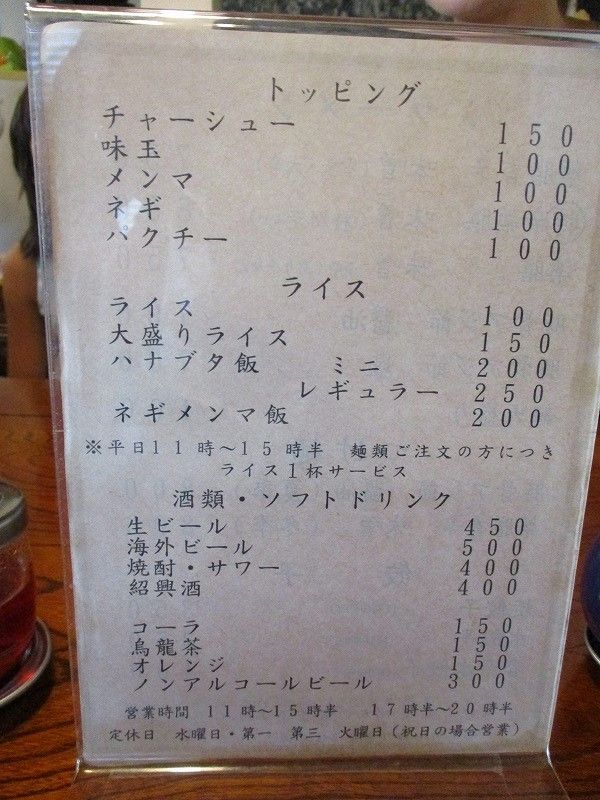 トッピング
チャーシュー 150
味玉 100
メンマ 100
ネギ 100
パクチー 100
ライス
ライス 100
大盛りライス 150
ハナブタ飯 ミニ 200
レギュラー 250
ネギメンマ飯 200
※平日11時～15時半 麺類ご注文の方につき
ライス1杯サービス
酒類・ソフトドリンク
生ビール 450
海外ビール 500
焼酎・サワー 400
紹興酒 400
コーラ 150
烏龍茶 150
オレンジ 150
ノンアルコールビール 300
営業時間 11時～15時半 17時半～20時半
定休日 水曜日・第一 第三 火曜日(祝日の場合営業)